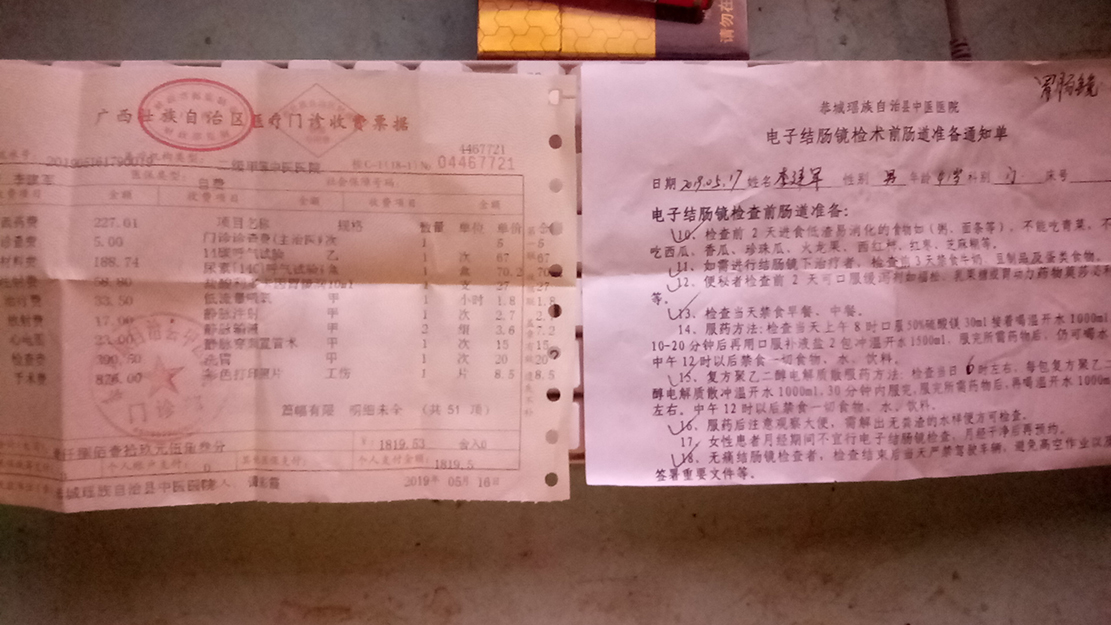 请勿在
广西壮族自治区医疗门诊收费票据
4467721
桂C-1(18-1)№ 04467721
二级甲等中医医院
医保类型： 自费 社会保障号码：
金额 收费项目 金额 收费项目 金额
西药费 227.61 项目名称 规格 数量 单位 单价
诊查费 5.00 门诊诊查费(主治医 次 1 5
188.74 14碳呼气试验 乙 1 次 67 67
尿素[14C]呼气试验 盒 1 盒 70.2
58.80 10ml 1 支 27
治疗费 33.50 低流量吸氧 甲 1 小时 1.8 1.8
17.00 静脉注射 甲 1 次 2.7
23.00 静脉输液 甲 2 组 3.6 7.2
检查费 静脉穿刺置管术 甲 1 次 15 15
手术费 洗胃 甲 1 次 20 20
彩色打印照片 工伤 1 片 8.5 8.5
门诊
篇幅有限 明细未全 (共 51 项)
￥: 1819.53 舍入0
个人账户支付： 0 个人支付金额： 1819.5
恭城瑶族自治县中医医院 2019年 05月 16日
胃肠镜
恭城瑶族自治县中医医院
电子结肠镜检术前肠道准备通知单
日期 2019.05.17 姓名 李建军 性别 男 年龄 41岁 科别 门 床号
电子结肠镜检查前肠道准备：
10、检查前 2 天进食低渣易消化的食物如(粥、面条等)，不能吃青菜，不
吃西瓜、香瓜、珍珠瓜、火龙果、西红柿、红枣、芝麻糊等。
11、如需进行结肠镜下治疗者，检查前 3 天禁食牛奶、豆制品及蛋类食物。
12、便秘者检查前 2 天可口服缓泻剂如福松、乳果糖或胃动力药物莫沙必利
等。
13、检查当天禁食早餐、中餐。
14、服药方法：检查当天上午 8 时口服 50%硫酸镁 30ml 接着喝温开水 1000ml
10-20 分钟后再用口服补液盐 2 包冲温开水 1500ml，服完所需药物后，仍可喝水
中午 12 时以后禁食一切食物、水、饮料。
15、复方聚乙二醇电解质散服药方法：检查当日 6 时左右，每包复方聚乙二
醇电解质散冲温开水 1000ml，30 分钟内服完，服完所需药物后，再喝温开水 1000ml
左右。中午 12 时以后禁食一切食物、水、饮料。
16、服药后注意观察大便，需解出无粪渣的水样便方可检查。
17、女性患者月经期间不宜行电子结肠镜检查，月经干净后再预约。
18、无痛结肠镜检查者，检查结束后当天严禁驾驶车辆，避免高空作业以及
签署重要文件等。